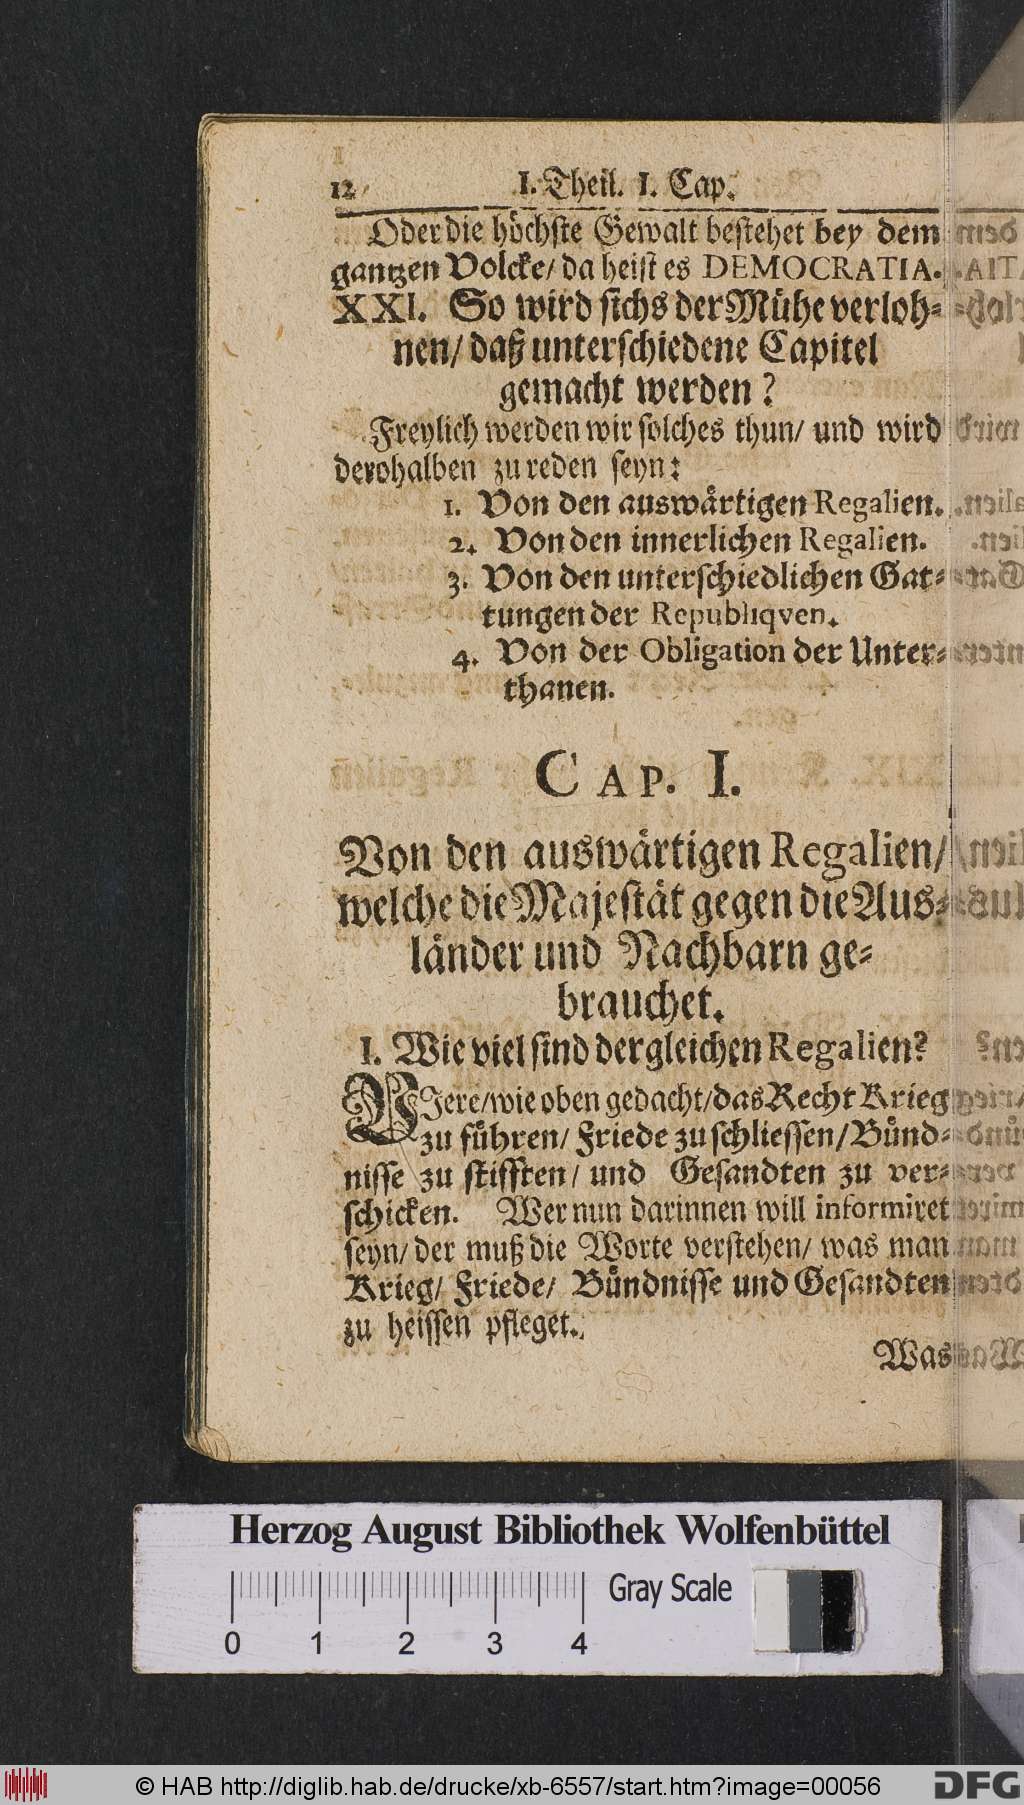 12 I. Theil. I. Cap.
Oder die höchste Gewalt bestehet bey dem
gantzen Volcke/ da heist es DEMOCRATIA.
XXI. So wird sichs der Mühe verloh-
nen/ daß unterschiedene Capitel
gemacht werden?
Freylich werden wir solches thun/ und wird
derohalben zu reden seyn:
1. Von den auswärtigen Regalien.
2. Von den innerlichen Regalien.
3. Von den unterschiedlichen Gat-
tungen der Republiqven.
4. Von der Obligation der Unter-
thanen.
CAP. I.
Von den auswärtigen Regalien/
welche die Majestät gegen die Aus-
länder und Nachbarn ge-
brauchet.
I. Wie viel sind dergleichen Regalien?
VIere/ wie oben gedacht/ das Recht Krieg
zu führen/ Friede zu schliessen/ Bünd-
nisse zu stifften/ und Gesandten zu ver-
schicken. Wer nun darinnen will informiret
seyn/ der muß die Worte verstehen/ was man
Krieg/ Friede/ Bündnisse und Gesandten
zu heissen pfleget.
Was
Herzog August Bibliothek Wolfenbüttel
Gray Scale
0 1 2 3 4
© HAB http://diglib.hab.de/drucke/xb-6557/start.htm?image=00056
DFG